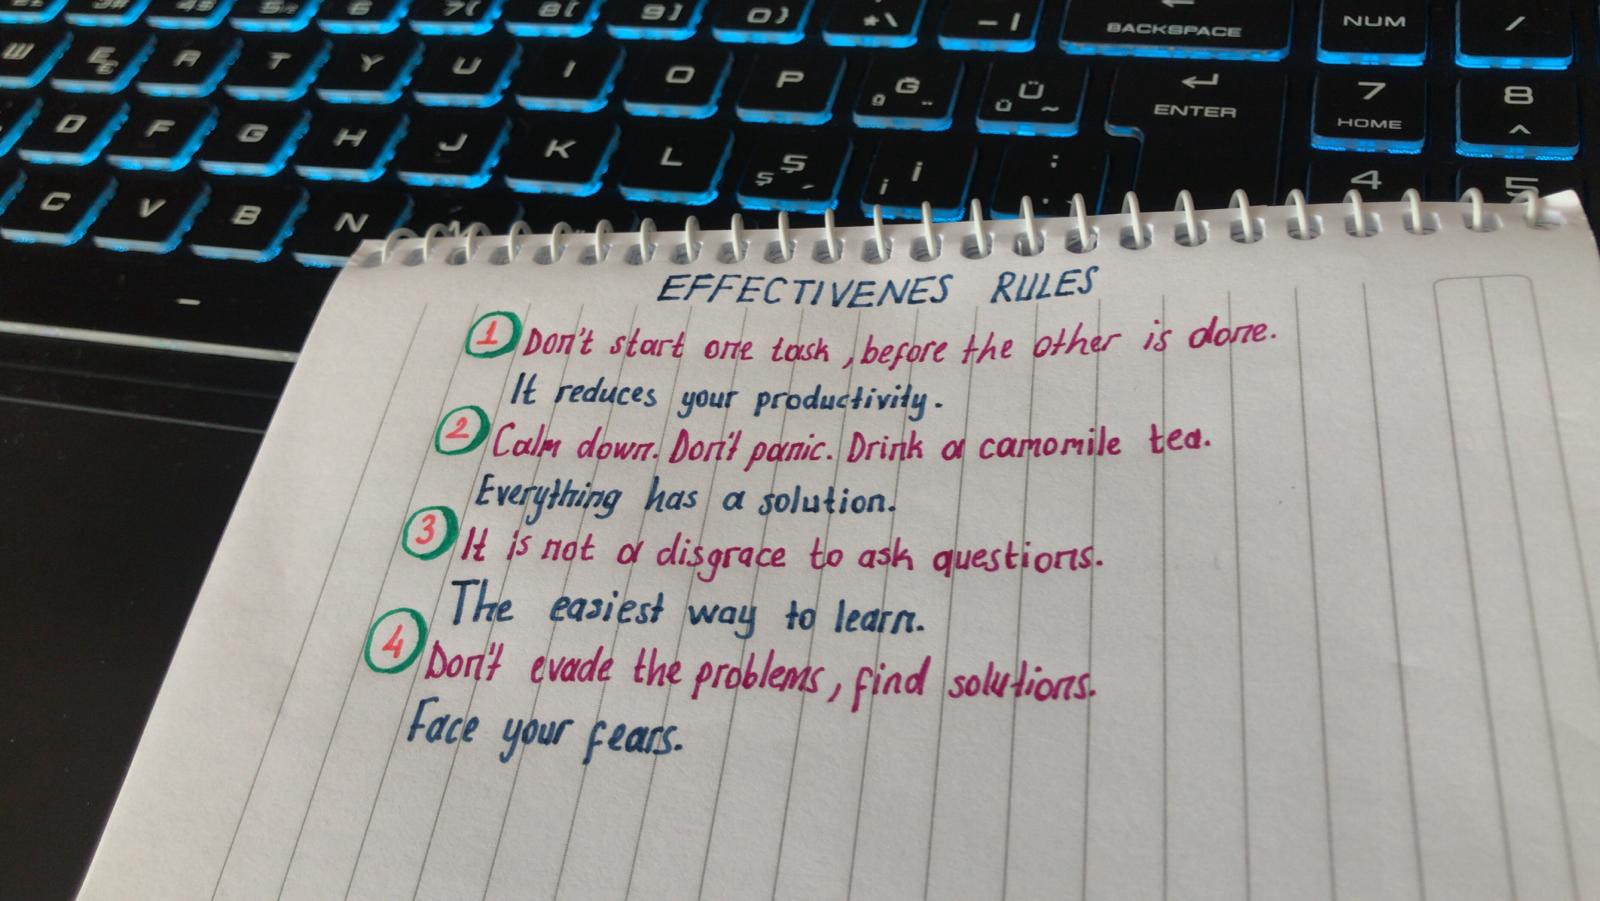 6 7{ 8[ 9] 0} *\ -| BACKSPACE NUM /
E R T Y U I O P Ğ ğ ¨ Ü ü ~ ENTER 7 HOME 8
D F G H J K L Ş ş ´ İ i : . 4 5
C V B N
EFFECTIVENES RULES
1 Don't start one task, before the other is done.
It reduces your productivity.
2 Calm down. Don't panic. Drink a camomile tea.
Everything has a solution.
3 It is not a disgrace to ask questions.
The easiest way to learn.
4 Don't evade the problems, find solutions.
Face your fears.